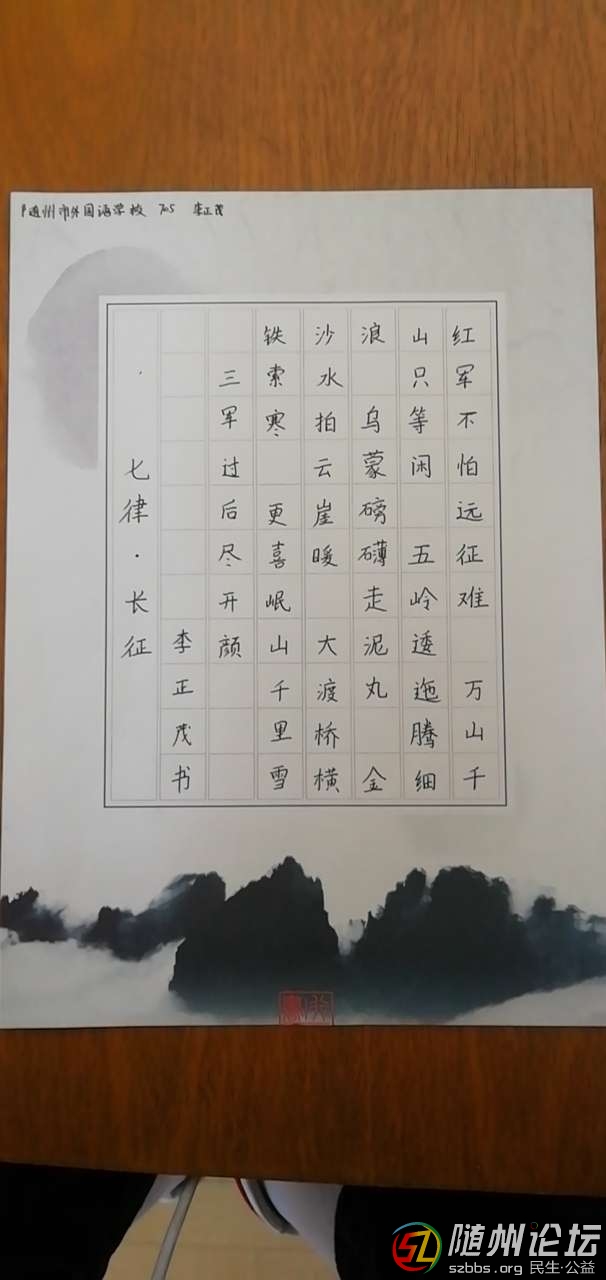 随州市外国语学校 705 李正茂
红军不怕远征难 万山千
山只等闲 五岭逶迤腾细
浪 乌蒙磅礴走泥丸 金
沙水拍云崖暖 大渡桥横
铁索寒 更喜岷山千里雪
三军过后尽开颜
李正茂书
七律·长征
随州论坛
szbbs.org 民生·公益